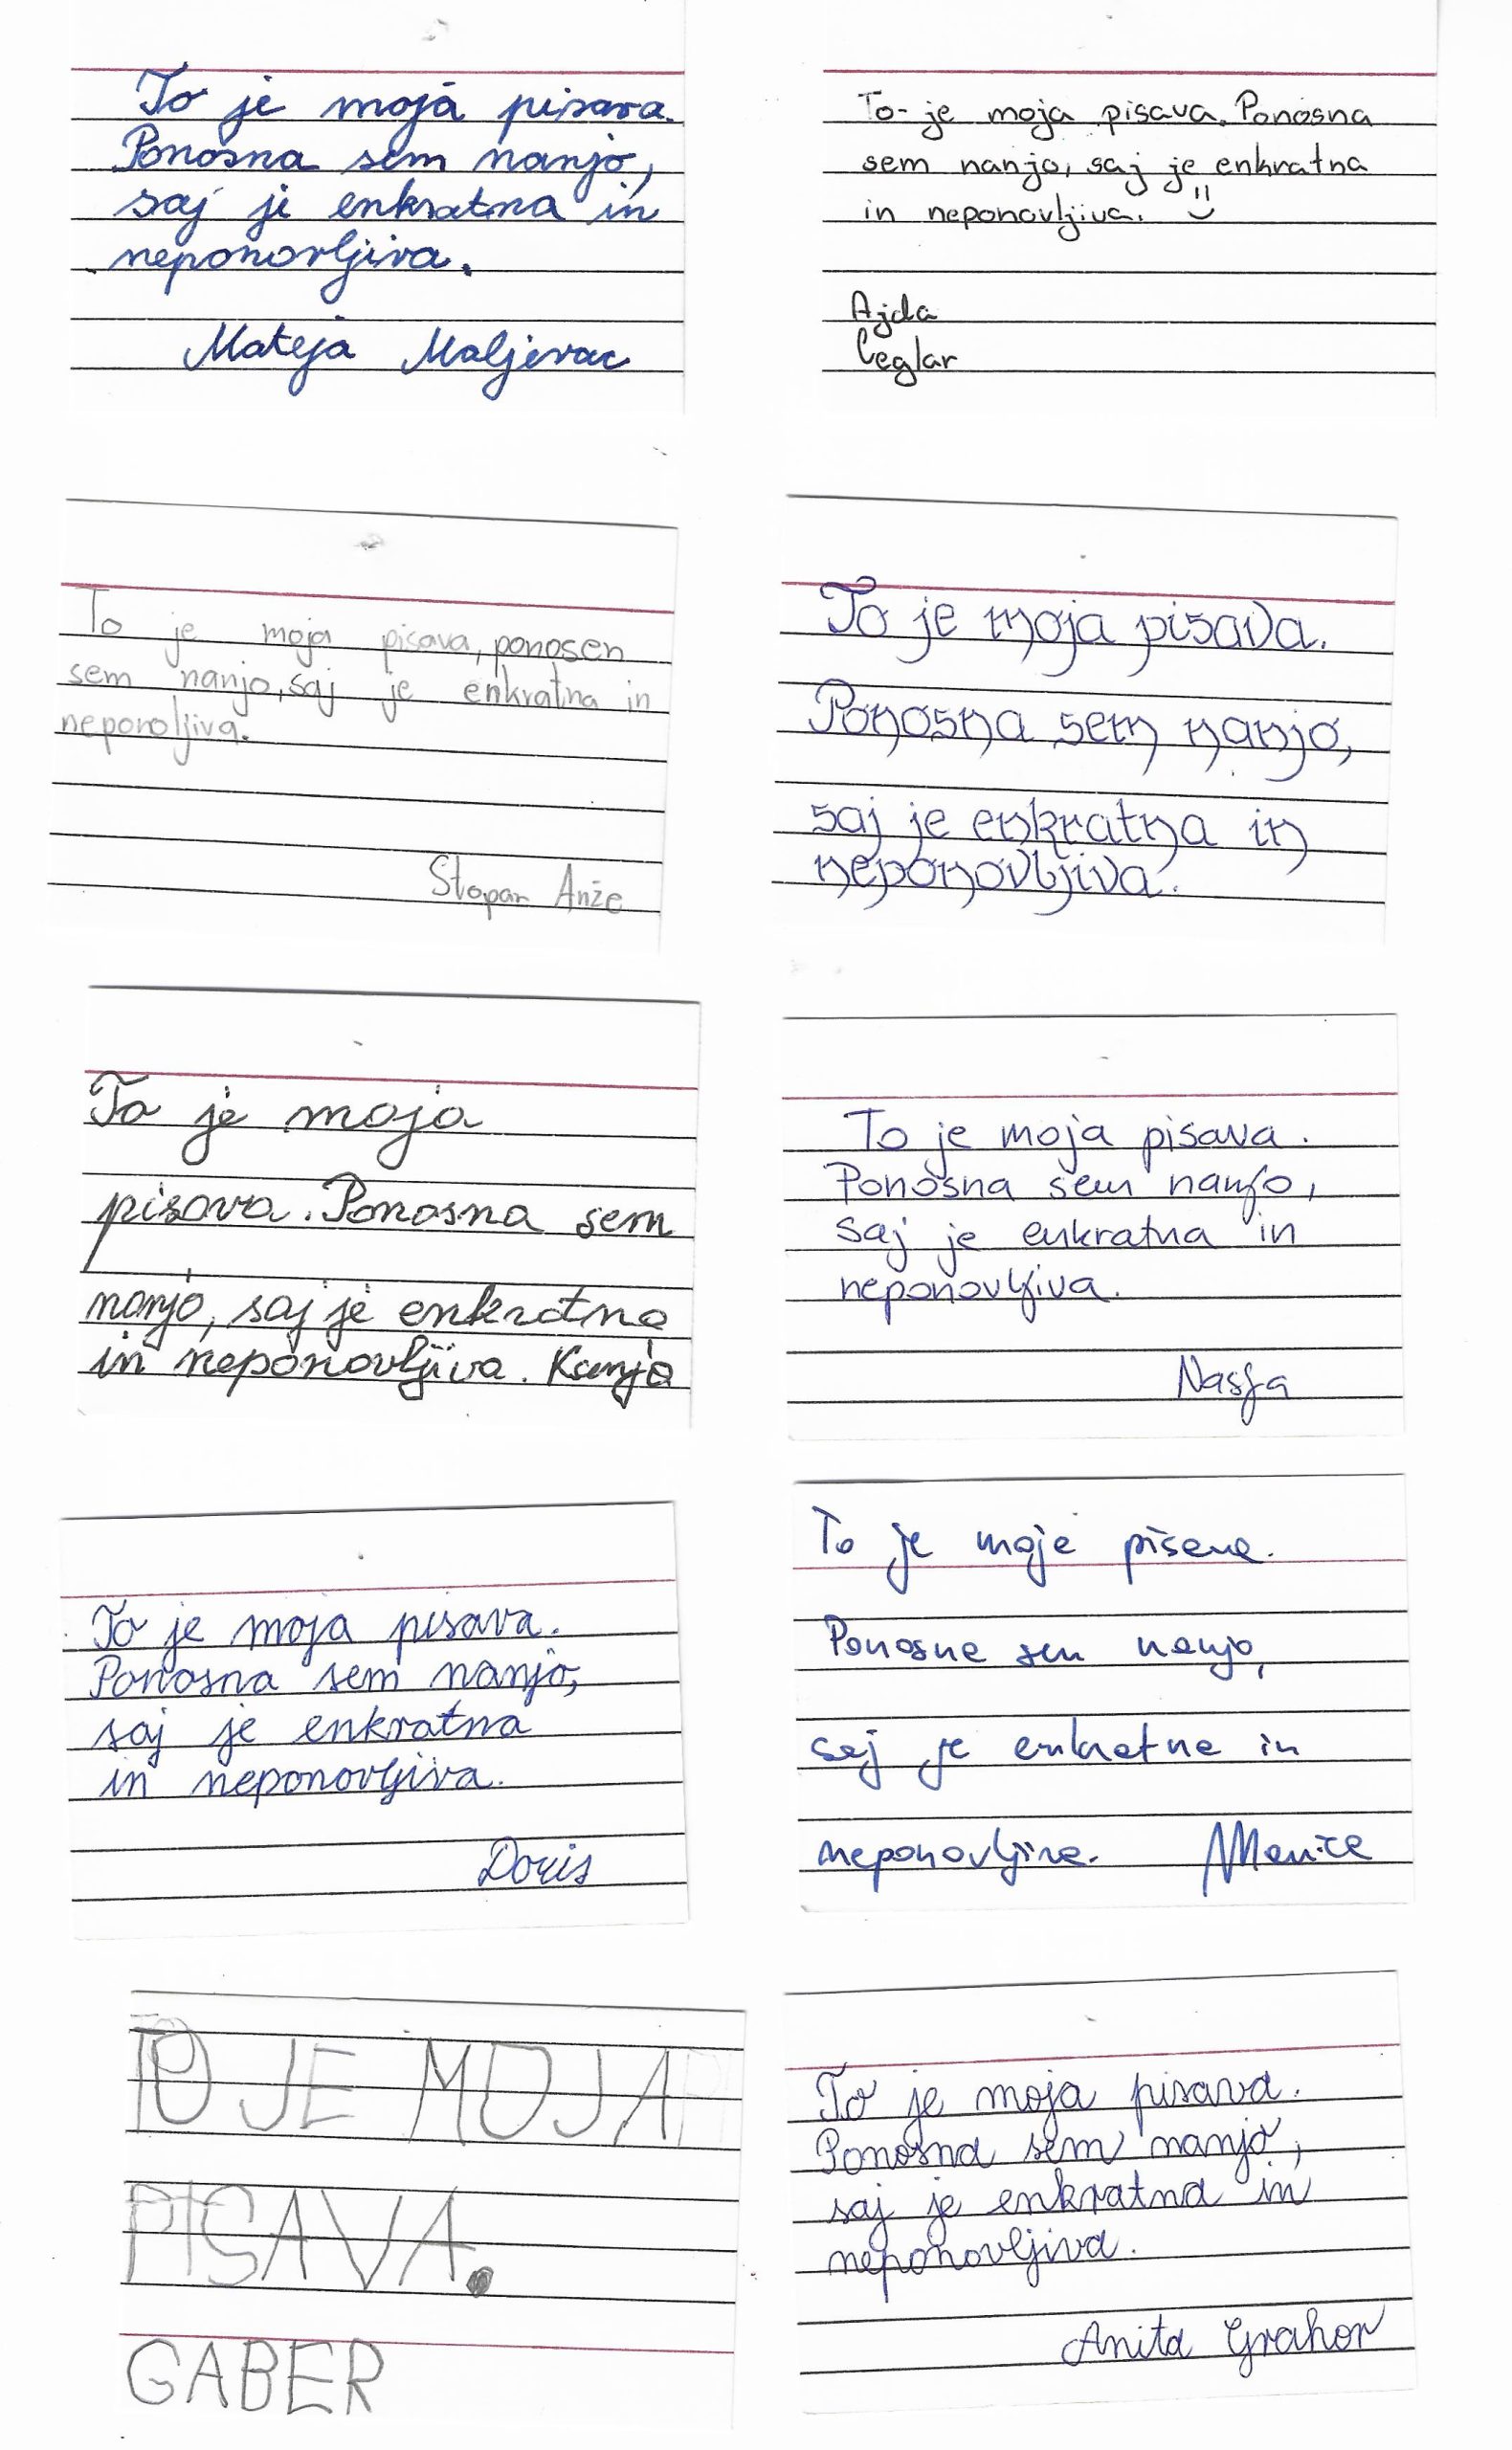 To je moja pisava.
Ponosna sem nanjo,
saj je enkratna in
neponovljiva.
Mateja Maljevac
To je moja pisava. Ponosna
sem nanjo, saj je enkratna
in neponovljiva.
Ajda
Ceglar
To je moja pisava, ponosen
sem nanjo, saj je enkratna in
neponoljiva.
Stopar Anže
To je moja pisava.
Ponosna sem nanjo,
saj je enkratna in
neponovljiva.
To je moja
pisava. Ponosna sem
nanjo, saj je enkratna
in neponovljiva. Ksenja
To je moja pisava.
Ponosna sem nanjo,
saj je enkratna in
neponovljiva.
Nastja
To je moja pisava.
Ponosna sem nanjo,
saj je enkratna
in neponovljiva.
Doris
To je moja pisava.
Ponosna sem nanjo,
saj je enkratna in
neponovljiva.
TO JE MOJA
PISAVA.
GABER
To je moja pisava.
Ponosna sem nanjo,
saj je enkratna in
neponovljiva.
Anita Grahor